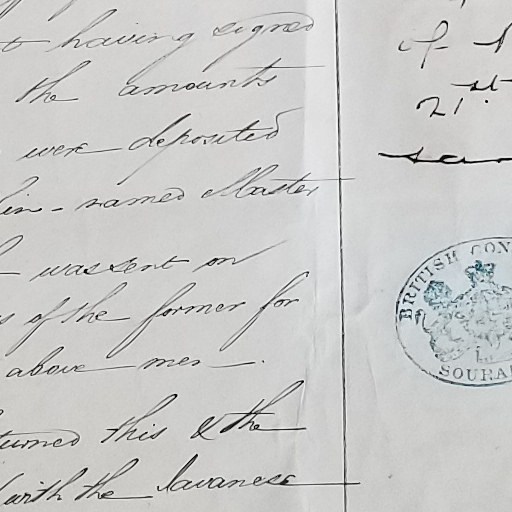 having signed
the amounts
were deposited
in-named Master
was sent on
of the former for
above men.
turned this & the
with the Javanese
of
21st
BRITISH CON
SOURA